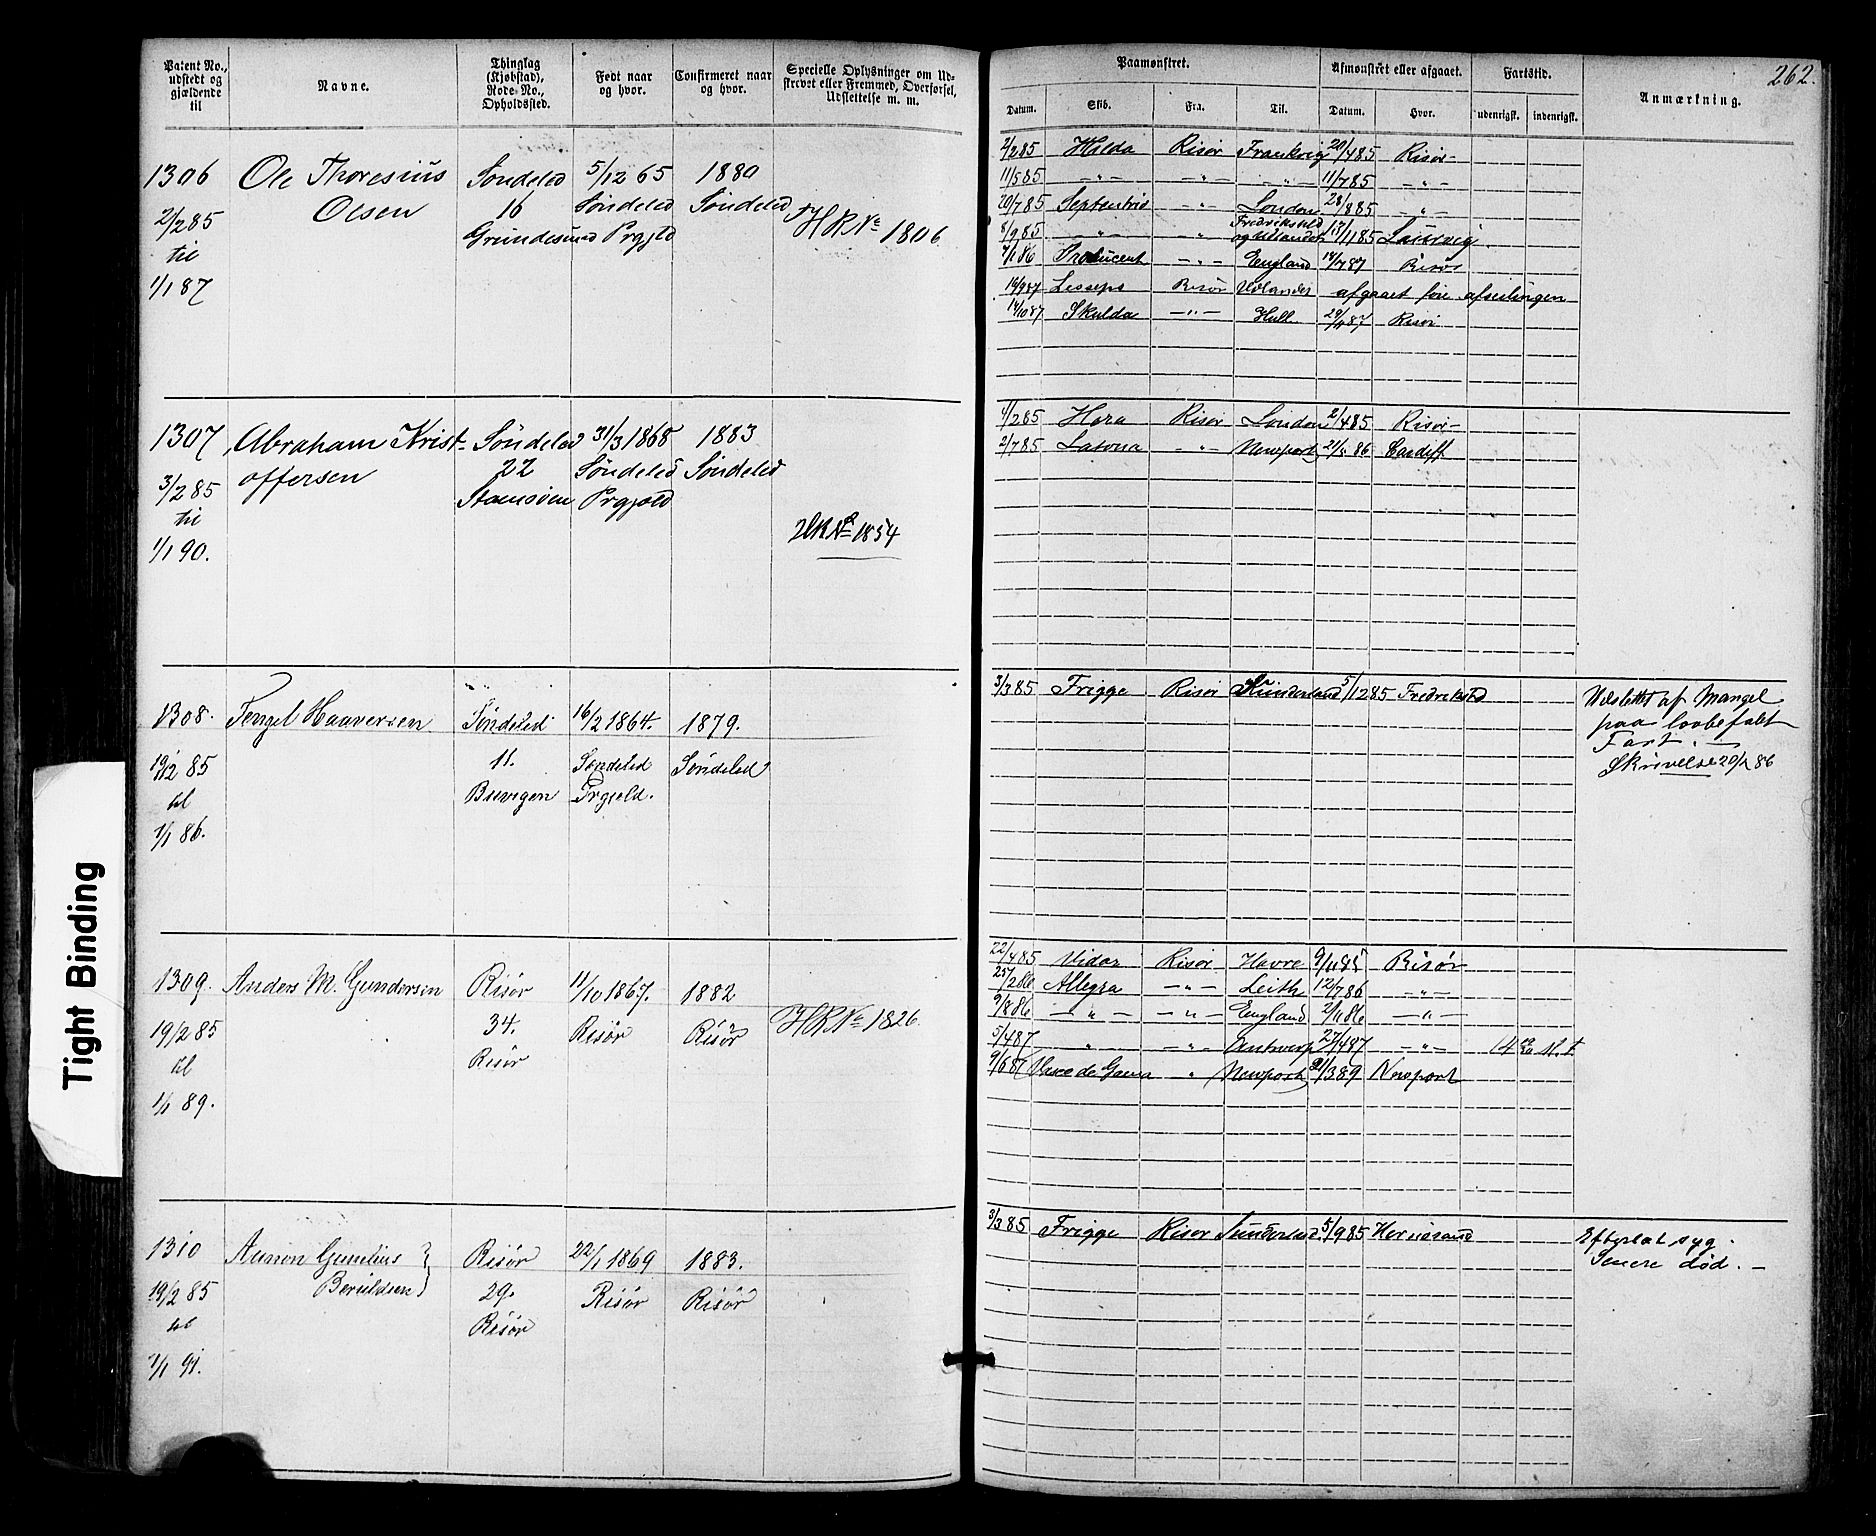 262.
Patent No., udstedt og gjældende til
Navne.
Thinglag (Kjøbstad), Rode-No., Opholdssted.
Født naar og hvor.
Confirmeret naar og hvor.
Specielle Oplysninger om Udstrevet eller Fremmed, Overførsel, Udslettelse m. m.
Paamønstret.
Afmønstret eller afgaaet.
Fartstid.
Anmærkning.
Datum. Skib. Fra. Til. Datum. Hvor. udenrigsk. indenrigsk.
1306 Ole Thoresius Søndeled 5/12 65 1880
Olsen 16 Søndeled Søndeled
2/2 85 Prgjld HRNo 1806
til
1/1 87
2/2 85 Hilda Risør 20/4 85 Risør
11/5 85 -"- -"- -"- 11/7 85 -"-
20/7 85 -"- London 28/8 85 -"-
8/9 85 -"- " Fredrikshald
og Udlandet
7/1 86 Producent -"- England Risør
Lesseps Risør Udlandet afgaaet føre afseilingen
14/10 87 Skulda -"- Hull Risør
1307 Abraham Krist- Søndeled 31/3 1868 1883
offersen 22 Søndeled Søndeled
3/2 85 Prgjæld
til HRNo 1854
1/1 90.
4/2 85 Risør London 2/4 85 Risør
2/7 85 Latona -"- Newport Cardiff
1308. Tengel Haaversen Søndeled 16/2 1864. 1879.
19/12 85 11. Søndeled Søndeled
til Buvigen Prgjeld.
1/1 86.
3/3 85 Frigge Risør Sunderland 5/12 85 Fredrikstad
Udslettet af Mangel
paa lovbefalt
Fart. —
Skrivelse 20/2 86
1309. Anders M. Gundersen Risør 11/10 1867. 1882
19/2 85 34. Risør Risør HRNo 1826.
til Risør
1/1 89.
22/4 85 Vidar Risør Havre 9/11 85 Risør
25/2 86 Allegra -"- Leith 12/7 86 -"-
9/8 86 -"- -"- England 2/11 86 -"-
5/4 87 " -"- Antwerp 27/4 87 -"-
9/6 87 Vasco da Gama " Newport Newport
1310 Aanon Gunelius Risør 22/1 1869 1883.
Beruldsen
19/2 85 29. Risør Risør
til Risør
1/1 91.
3/3 85 Frigge Risør Sunderland 5/9 85 Hernøsand
Efterlat syg.
Senere død. —
Tight Binding